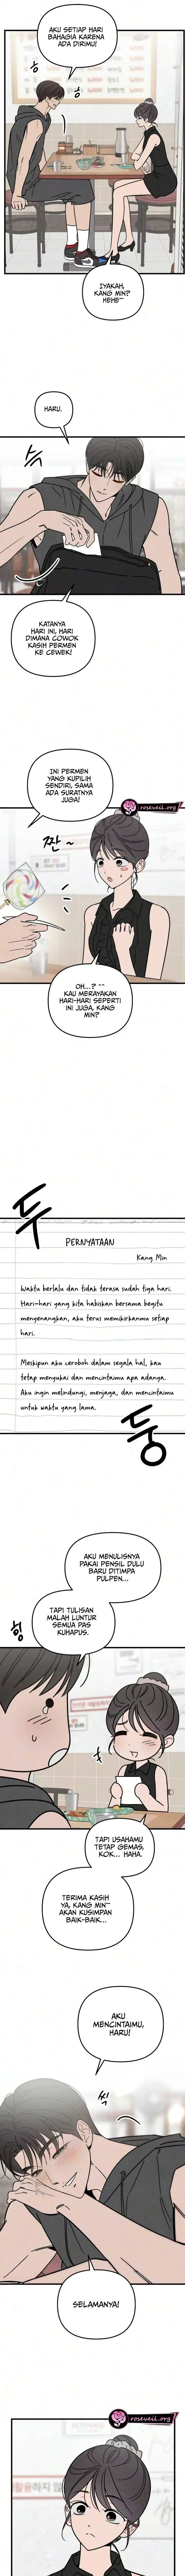 AKU SETIAP HARI
BAHAGIA KARENA
ADA DIRIMU!
IYAKAH,
KANG MIN?
HEHE~
HARU.
KATANYA
HARI INI, HARI
DIMANA COWOK
KASIH PERMEN
KE CEWEK!
INI PERMEN
YANG KUPILIH
SENDIRI, SAMA
ADA SURATNYA
JUGA!
roseveil.org
짠~
OH...? ^^
KAU MERAYAKAN
HARI-HARI SEPERTI
INI JUGA, KANG
MIN?
툭
PERNYATAAN
Kang Min
Waktu berlalu dan tidak terasa sudah tiga hari.
Hari-hari yang kita habiskan bersama begitu
mengenangkan, aku terus memikirkanmu setiap
hari.
Meskipun aku ceroboh dalam segala hal, kau
tetap menyukai dan mencintaimu apa adanya.
Aku ingin melindungi, menjaga, dan mencintaimu
untuk waktu yang lama.
AKU MENULISNYA
PAKAI PENSIL DULU
BARU DITIMPA
PULPEN...
TAPI TULISAN
MALAH LUNTUR
SEMUA PAS
KUHAPUS.
힝
TAPI USAHAMU
TETAP GEMAS,
KOK... HAHA.
TERIMA KASIH
YA, KANG MIN~
AKAN KUSIMPAN
BAIK-BAIK...
AKU
MENCINTAIMU,
HARU!
SELAMANYA!
roseveil.org